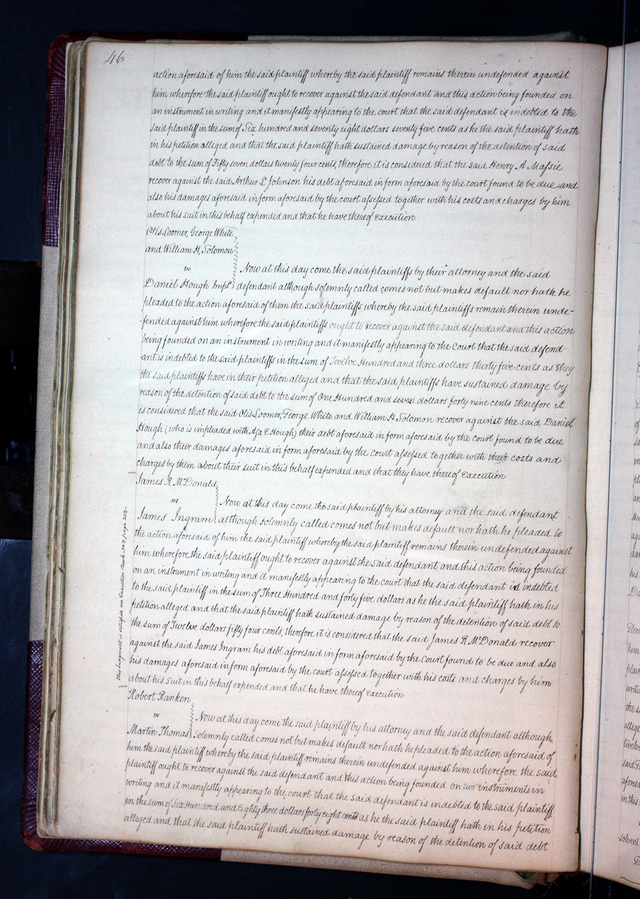 46
action aforesaid of him the said plaintiff whereby the said plaintiff remains therein undefended against
him wherefore the said plaintiff ought to recover against the said defendant and this action being founded on
an instrument in writing and it manifestly appearing to the court that the said defendant is indebted to the
said plaintiff in the sum of Six hundred and seventy eight dollars seventy five cents as he the said plaintiff hath
in his petition alleged and that the said plaintiff hath sustained damage by reason of the detention of said
debt to the sum of Fifty seven dollars twenty four cents, therefore it is considered that the said Henry A. Massie
recover against the said Arthur L Johnson his debt aforesaid in form aforesaid by the court found to be due and
also his damages aforesaid in form aforesaid by the court assessed together with his costs and charges by him
about his suit in this behalf expended and that he have thereof Execution
Otis Loomer, George White
and William H. Solomon
vs Now at this day come the said plaintiffs by their attorney and the said
Daniel Hough Impl. defendant although solemnly called comes not but makes default nor hath he
pleaded to the action aforesaid of them the said plaintiffs whereby the said plaintiffs remain therein unde-
fended against him wherefore the said plaintiffs ought to recover against the said defendant and this action
being founded on an instrument in writing and it manifestly appearing to the Court that the said defend-
ant is indebted to the said plaintiffs in the sum of Twelve Hundred and three dollars thirty five cents as they
the said plaintiffs have in their petition alleged and that the said plaintiffs have sustained damage by
reason of the detention of said debt to the sum of One Hundred and seven dollars forty nine cents therefore it
is considered that the said Otis Loomer, George White and William H. Solomon recover against the said Daniel
Hough (who is impleaded with Aja E Hough) their debt aforesaid in form aforesaid by the court found to be due
and also their damages aforesaid in form aforesaid by the court assessed together with their costs and
charges by them about their suit in this behalf expended and that they have thereof Execution
James R. McDonald
vs Now at this day come the said plaintiff by his attorney and the said defendant
James Ingram although solemnly called comes not but makes default nor hath he pleaded to
the action aforesaid of him the said plaintiff whereby the said plaintiff remains therein undefended against
him wherefore the said plaintiff ought to recover against the said defendant and this action being founded
on an instrument in writing and it manifestly appearing to the court that the said defendant is indebted
to the said plaintiff in the sum of Three Hundred and forty five dollars as he the said plaintiff hath in his
petition alleged and that the said plaintiff hath sustained damage by reason of the detention of said debt to
the sum of Twelve dollars fifty four cents, therefore it is considered that the said James R. McDonald recover
against the said James Ingram his debt aforesaid in form aforesaid by the Court found to be due and also
his damages aforesaid in form aforesaid by the court assessed together with his costs and charges by him
about his suit in this behalf expended and that he have thereof Execution
this Judgment is satisfied see Execution Book page
Robert Ranken
vs Now at this day come the said plaintiff by his attorney and the said defendant although
Martin Thomas solemnly called comes not but makes default nor hath he pleaded to the action aforesaid of
him the said plaintiff whereby the said plaintiff remains therein undefended against him wherefore the said
plaintiff ought to recover against the said defendant and this action being founded on two instruments in
writing and it manifestly appearing to the court that the said defendant is indebted to the said plaintiff
in the sum of Six Hundred and Eighty three dollars forty eight cents as he the said plaintiff hath in his petition
alleged and that the said plaintiff hath sustained damage by reason of the detention of said debt